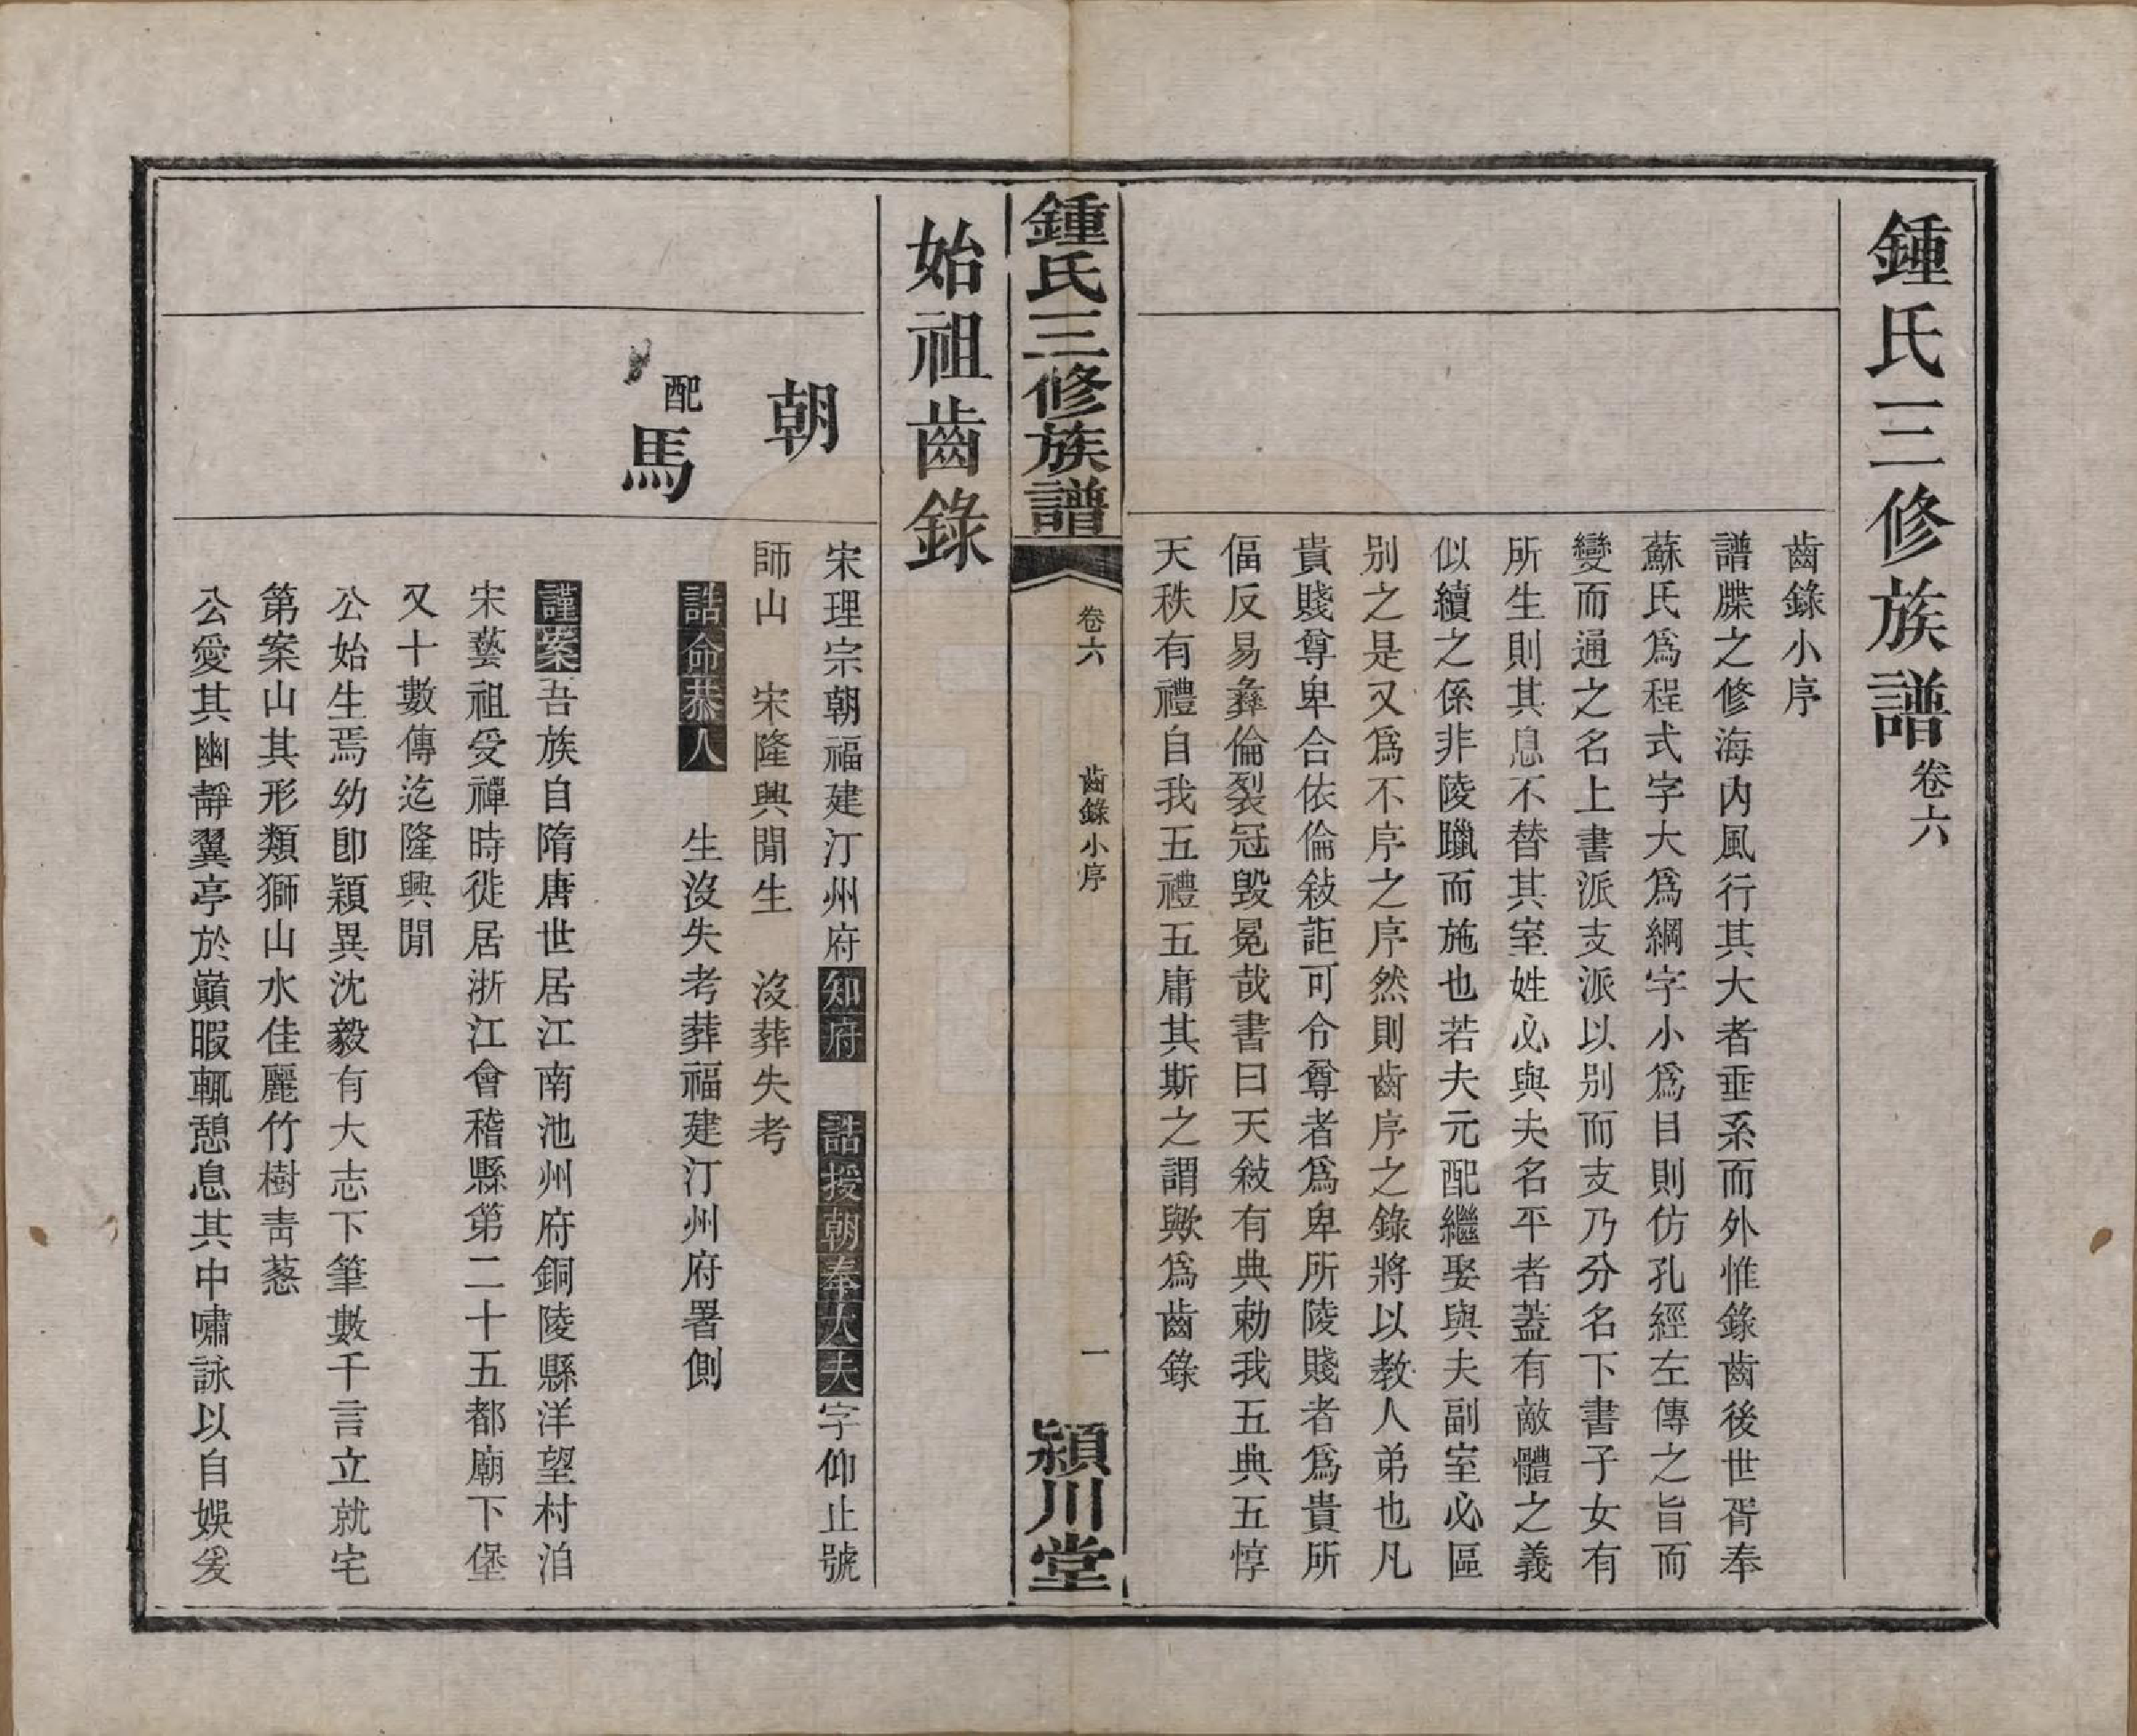 鍾氏三修族譜卷六
齒錄小序
譜牒之修海內風行其大者垂系而外惟錄齒後世胥奉
蘇氏爲程式字大爲綱字小爲目則仿孔經左傳之旨而
變而通之名上書派支派以別而支乃分名下書子女有
所生則其息不替其室姓必與夫名平者蓋有敵體之義
似續之係非陵躐而施也若夫元配繼娶與夫副室必區
別之是又爲不序之序然則齒序之錄將以教人弟也凡
貴賤尊卑合依倫敍詎可令尊者爲卑所陵賤者爲貴所
偪反易彝倫裂冠毀冕哉書曰天敍有典勅我五典五惇
天秩有禮自我五禮五庸其斯之謂歟爲齒錄
鍾氏三修族譜
卷六
齒錄小序
一
潁川堂
始祖齒錄
朝
宋理宗朝福建汀州府知府 誥授朝奉大夫字仰止號
師山 宋隆興閒生 沒葬失考
配馬
誥命恭人 生沒失考葬福建汀州府署側
謹案吾族自隋唐世居江南池州府銅陵縣洋望村洎
宋藝祖受禪時徙居浙江會稽縣第二十五都廟下堡
又十數傳迄隆興閒
公始生焉幼卽穎異沈毅有大志下筆數千言立就宅
第案山其形類獅山水佳麗竹樹靑蔥
公愛其幽靜翼亭於巔暇輒憩息其中嘯詠以自娛爰